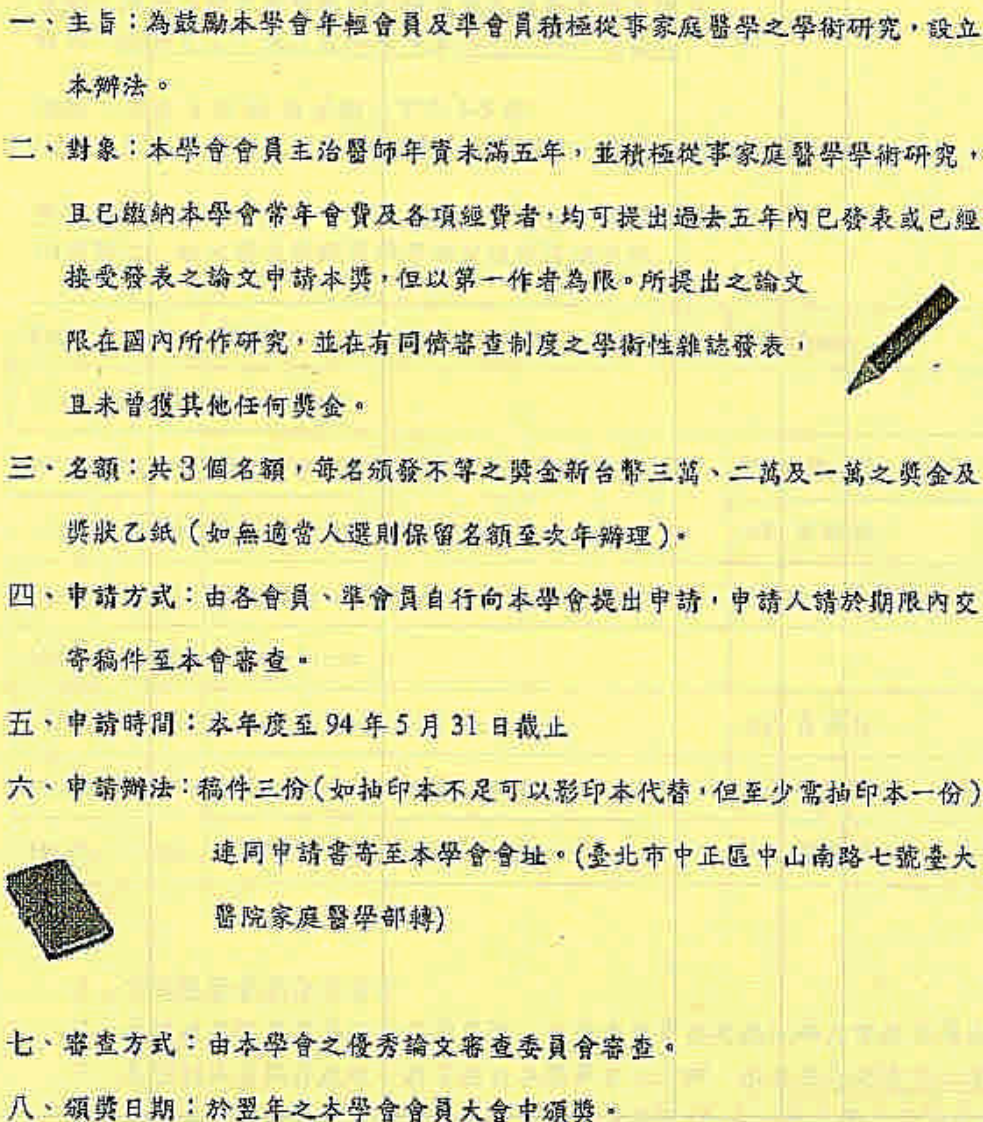 一、主旨：為鼓勵本學會年輕會員及準會員積極從事家庭醫學之學術研究，設立
本辦法。
二、對象：本學會會員主治醫師年資未滿五年，並積極從事家庭醫學學術研究，
且已繳納本學會常年會費及各項經費者，均可提出過去五年內已發表或已經
接受發表之論文申請本獎，但以第一作者為限。所提出之論文
限在國內所作研究，並在有同儕審查制度之學術性雜誌發表，
且未曾獲其他任何獎金。
三、名額：共3個名額，每名頒發不等之獎金新台幣三萬、二萬及一萬之獎金及
獎狀乙紙（如無適當人選則保留名額至次年辦理）。
四、申請方式：由各會員、準會員自行向本學會提出申請，申請人請於期限內交
寄稿件至本會審查。
五、申請時間：本年度至 94 年 5 月 31 日截止
六、申請辦法：稿件三份(如抽印本不足可以影印本代替，但至少需抽印本一份)
連同申請書寄至本學會會址。(臺北市中正區中山南路七號臺大
醫院家庭醫學部轉)
七、審查方式：由本學會之優秀論文審查委員會審查。
八、頒獎日期：於翌年之本學會會員大會中頒獎。